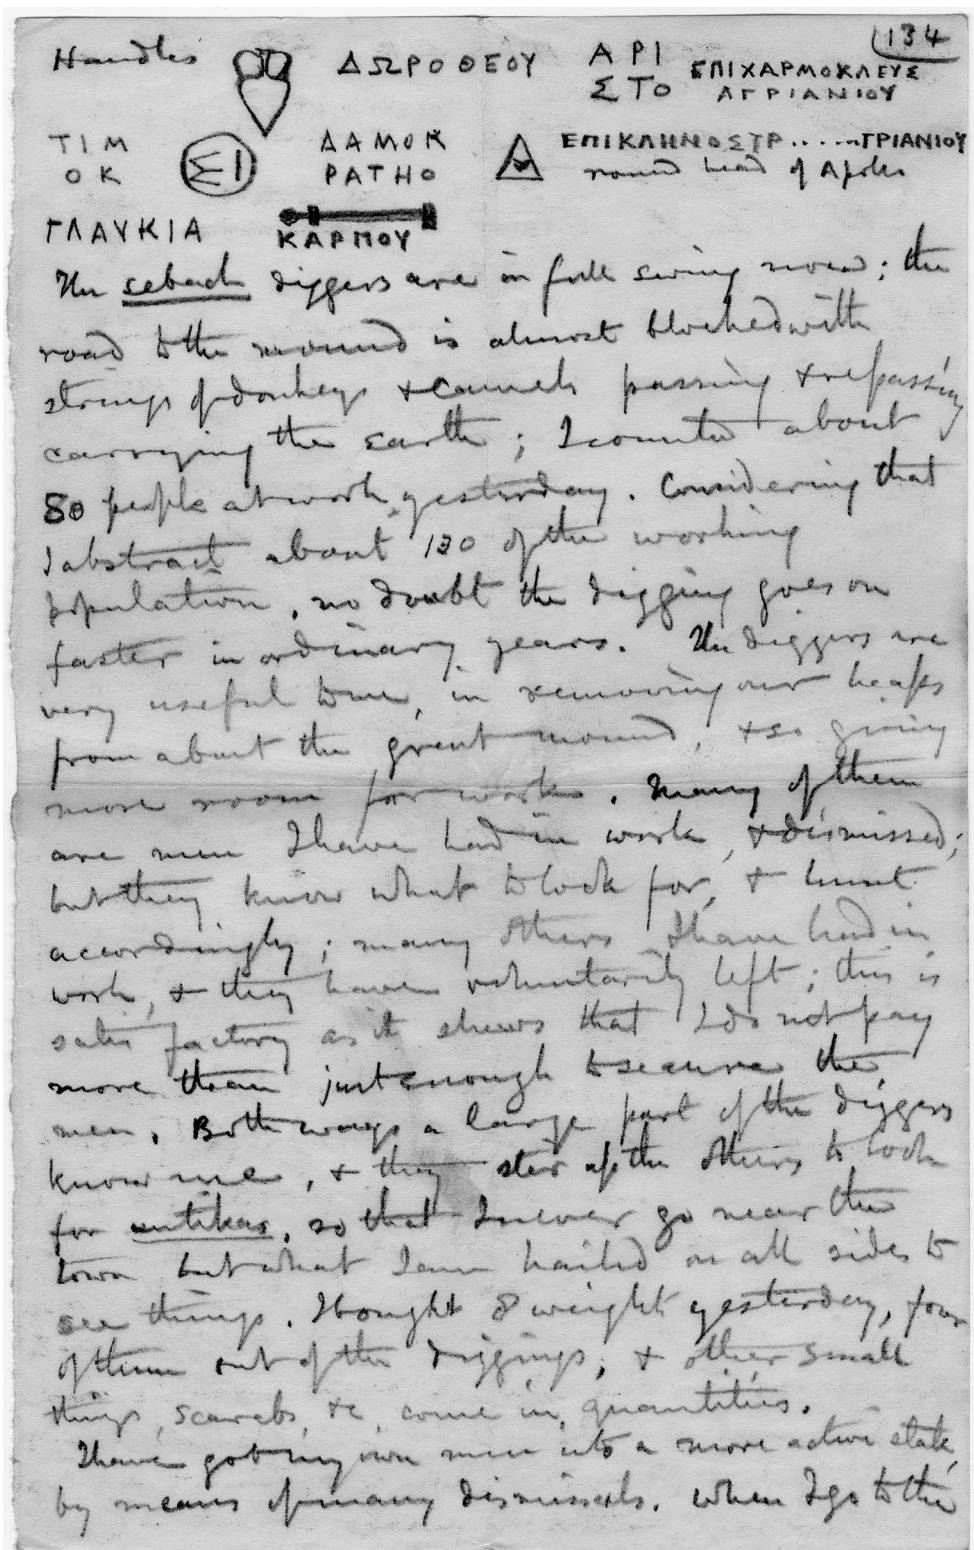 134
Handles
ΔΩΡΟΘΕΟΥ
ΑΡΙ
ΣΤΟ
ΕΠΙΧΑΡΜΟΚΛΕΥΣ
ΑΓΡΙΑΝΙΟΥ
ΤΙΜ
ΟΚ
ΣΙ
ΔΑΜΟΚ
ΡΑΤΗΟ
ΕΠΙΚΛΗΝΟΣΤΡ.....ΓΡΙΑΝΙΟΥ
round head of Apollo
ΓΛΑΥΚΙΑ
ΚΑΡΠΟΥ
The sebach diggers are in full swing now; the
road to the mound is almost blocked with
strings of donkeys & camels passing & repassing
carrying the earth; I counted about
80 people at work yesterday. Considering that
I abstract about 130 of the working
population, no doubt the digging goes on
faster in ordinary years. The diggers are
very useful to me, in removing our heaps
from about the great mound, & so giving
more room for work. Many of them
are men I have had in work, & dismissed;
but they know what to look for, & hunt
accordingly; many others I have had in
work, & they have voluntarily left; this is
satisfactory as it shews that I do not pay
more than just enough to secure the
men. Both ways a large part of the diggers
know me, & they stir up the others to look
for antikas, so that I never go near the
town but what I am hailed on all sides to
see things. I bought 8 weights yesterday, four
of them out of the diggings; & other small
things, scarabs, &c, come in, quantities.
I have got my own men into a more active state,
by means of many dismissals. When I go to the